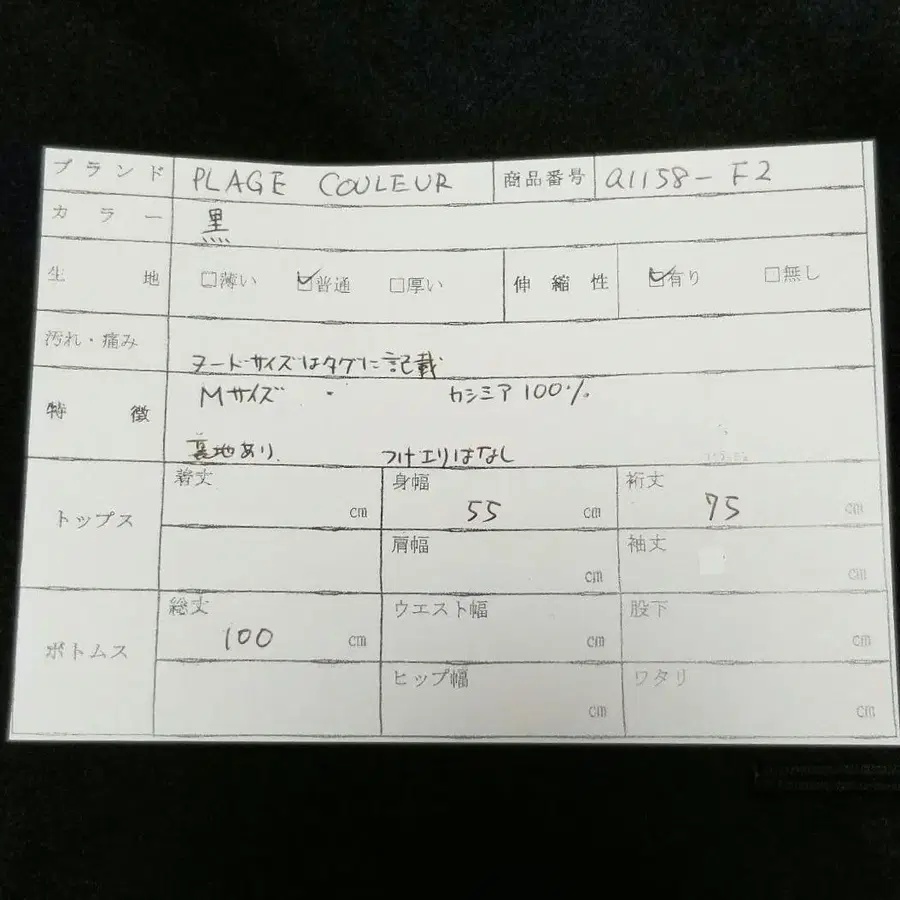 ブランド PLAGE COULEUR 商品番号 Q1158-F2
カラー 黒
生地 □薄い ☑普通 □厚い 伸縮性 ☑有り □無し
汚れ・痛み
ヌードサイズはタグに記載
特徴 Mサイズ ・ カシミア100%
裏地あり. つけエリはなし
トップス 着丈 cm 身幅 55 cm 裄丈 75 cm
肩幅 cm 袖丈 cm
ボトムス 総丈 100 cm ウエスト幅 cm 股下 cm
ヒップ幅 cm ワタリ cm